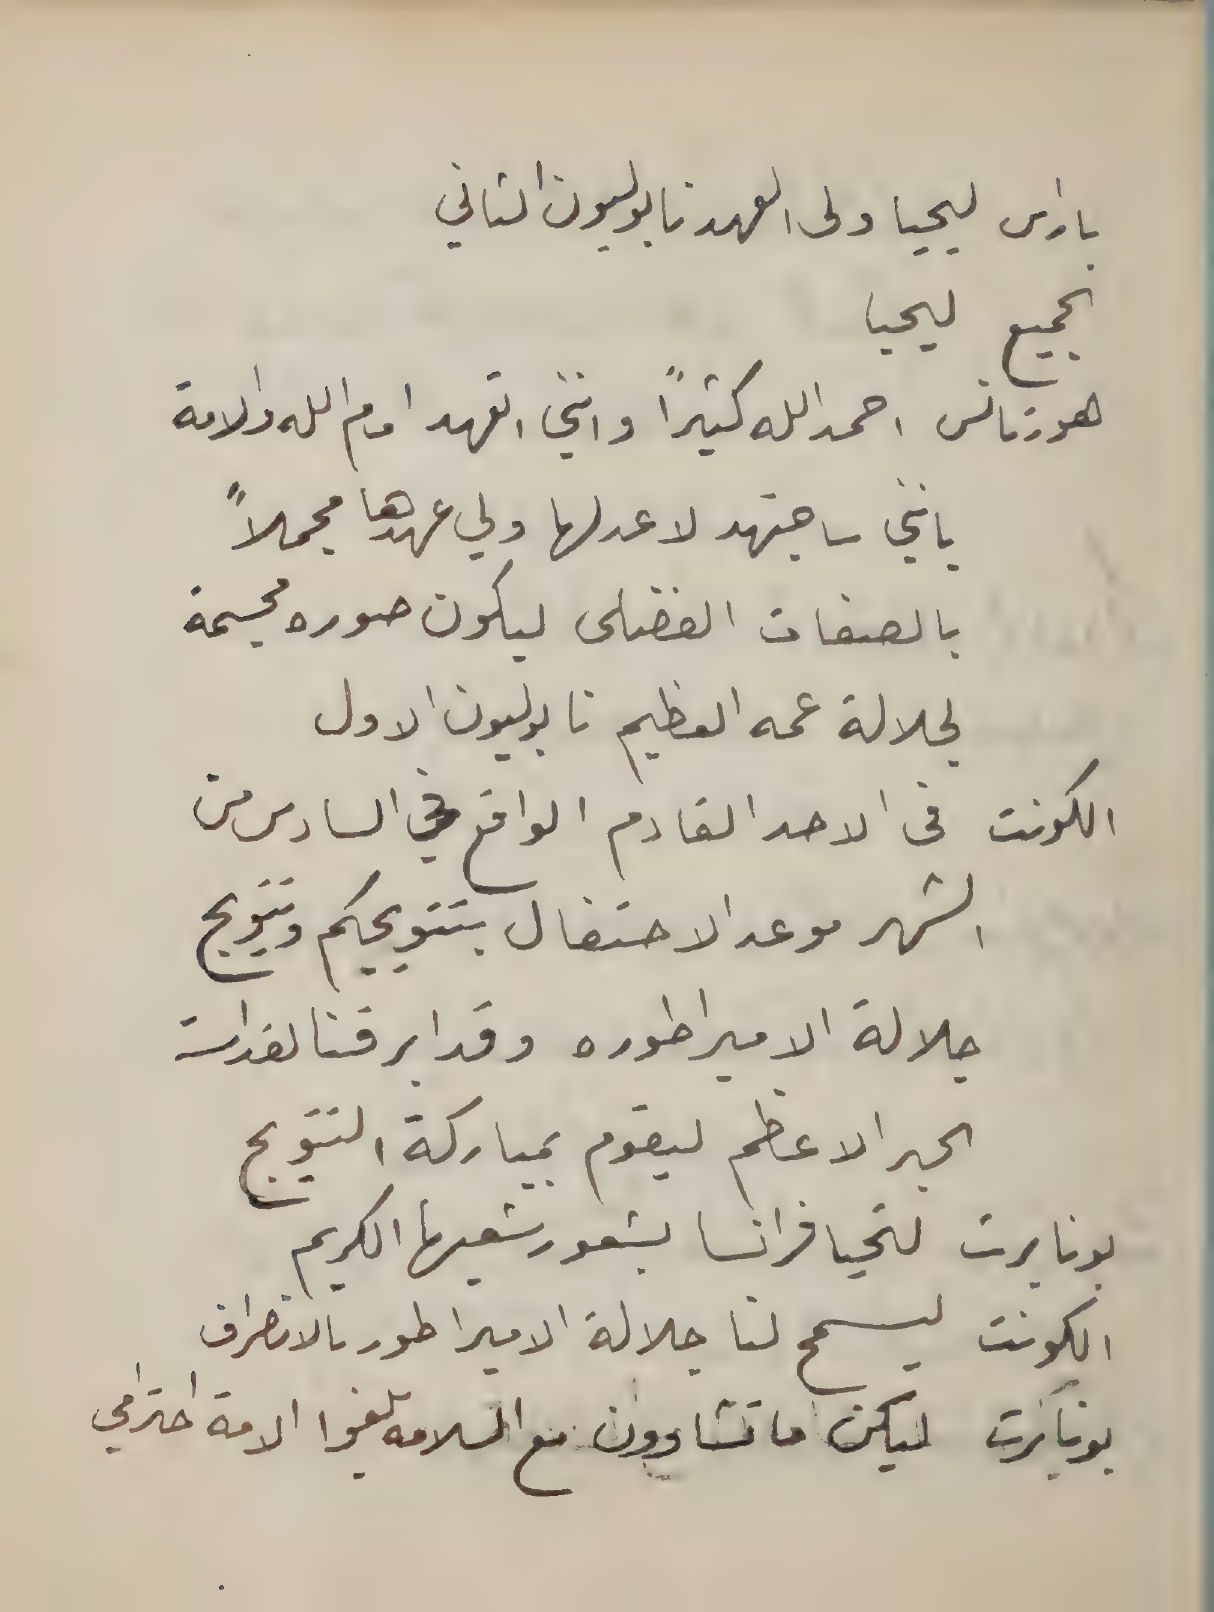 باراس ليحيا ولى العهد نابوليون الثاني
الجميع ليحيا
هورتانس احمد الله كثيراً وانني اتعهد امام الله والامة
بانني ساجتهد لاعد لها ولي عهدها مجملاً
بالصفات الفضلى ليكون صوره مجسمة
لجلالة عمه العظيم نابوليون الاول
الكونت فى الاحد القادم الواقع في السادس من
الشهر موعد الاحتفال بتتويجكم وتتويج
جلالة الامبراطوره وقد ابرقنا لقداسة
الحبر الاعظم ليقوم بمباركة التتويج
بونابرت لتحيا فرانسا بشعور شعبها الكريم
الكونت ليسمح لنا جلالة الامبراطور بالانصراف
بونابرت ليكن ما تشاوون مع السلامه بلغوا الامة احترامي